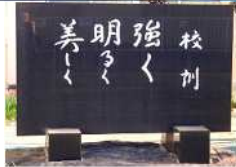 校訓
強く
明るく
美しく